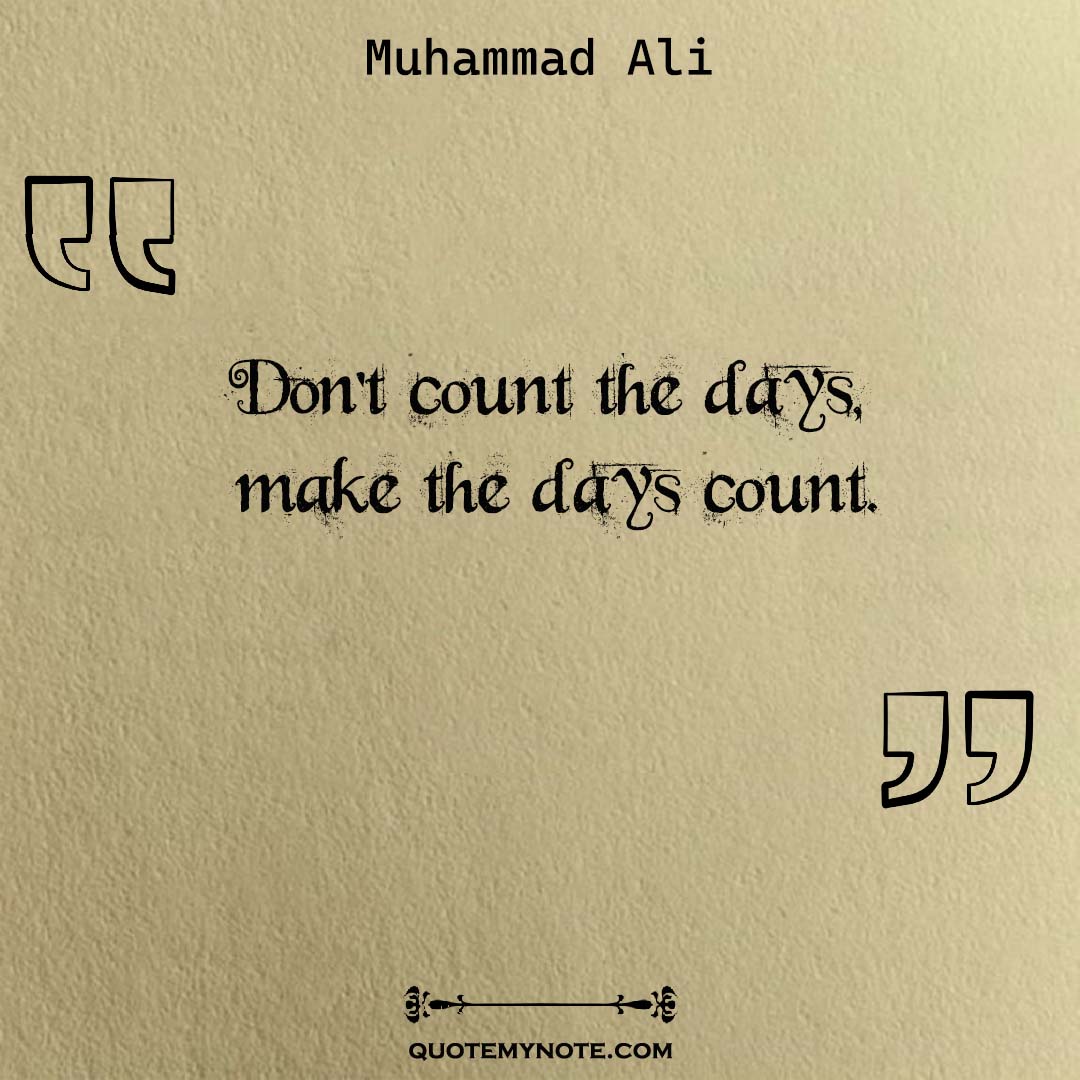 Muhammad Ali
Don't count the days,
make the days count.
QUOTEMYNOTE.COM